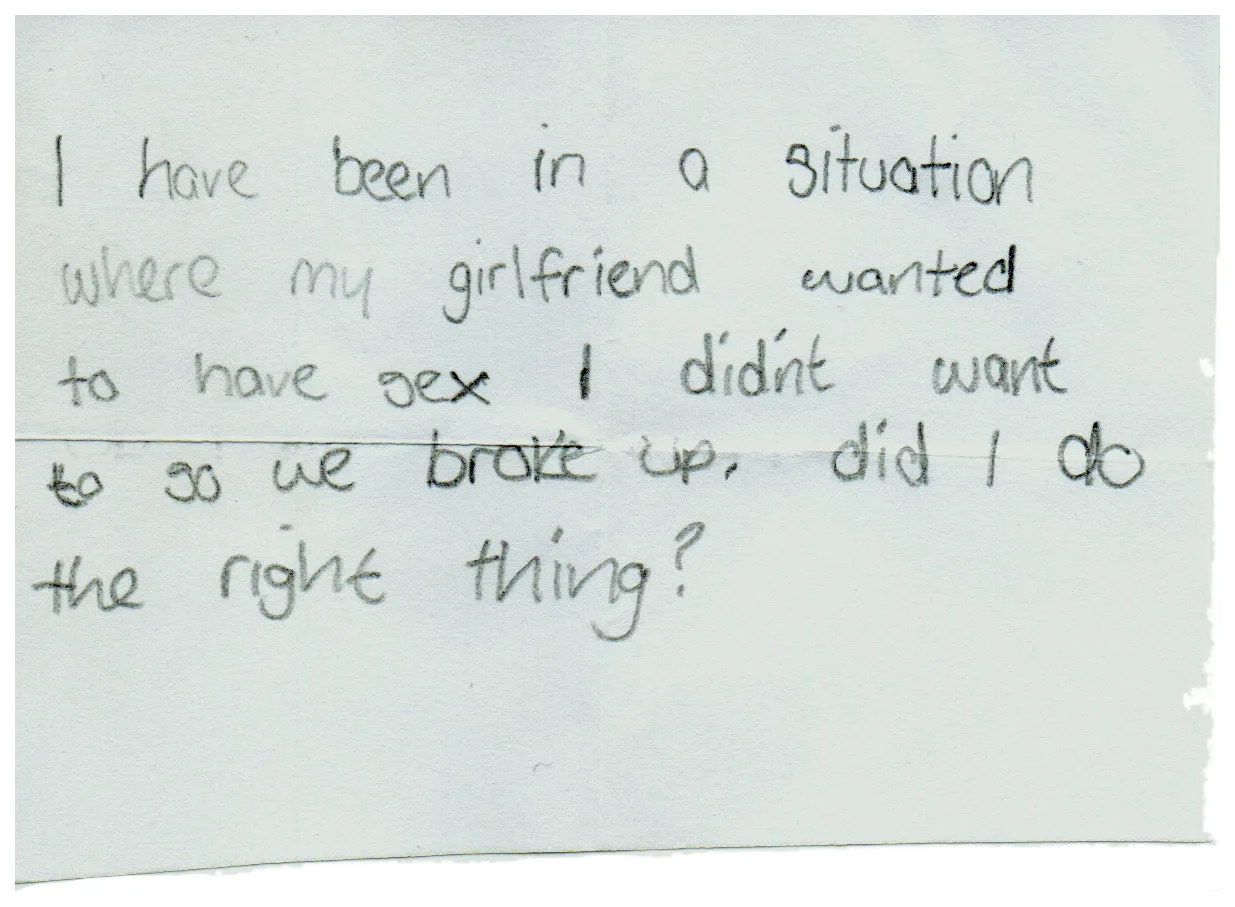 I have been in a situation
where my girlfriend wanted
to have sex I didn't want
to so we broke up. did I do
the right thing?